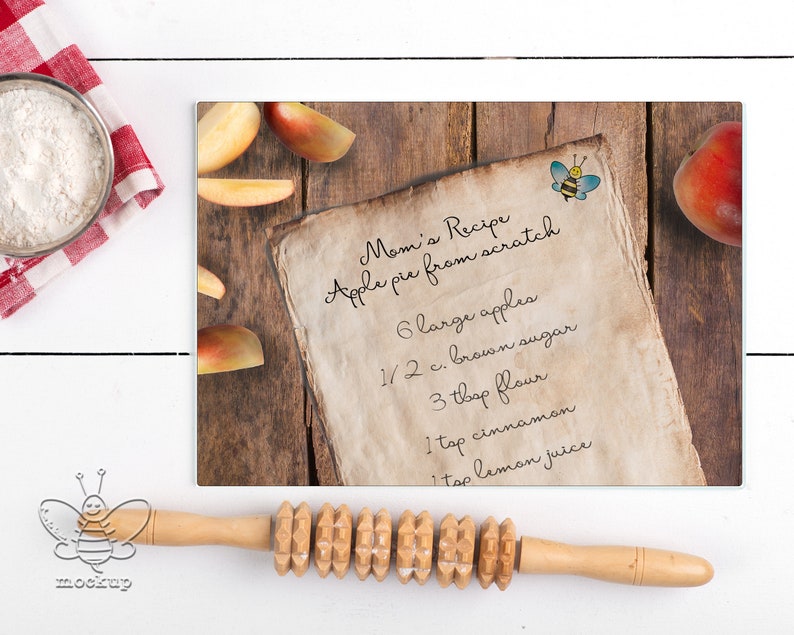 Mom's Recipe
Apple pie from scratch
6 large apples
1/2 c. brown sugar
3 tbsp flour
1 tsp cinnamon
1 tsp lemon juice
mockup